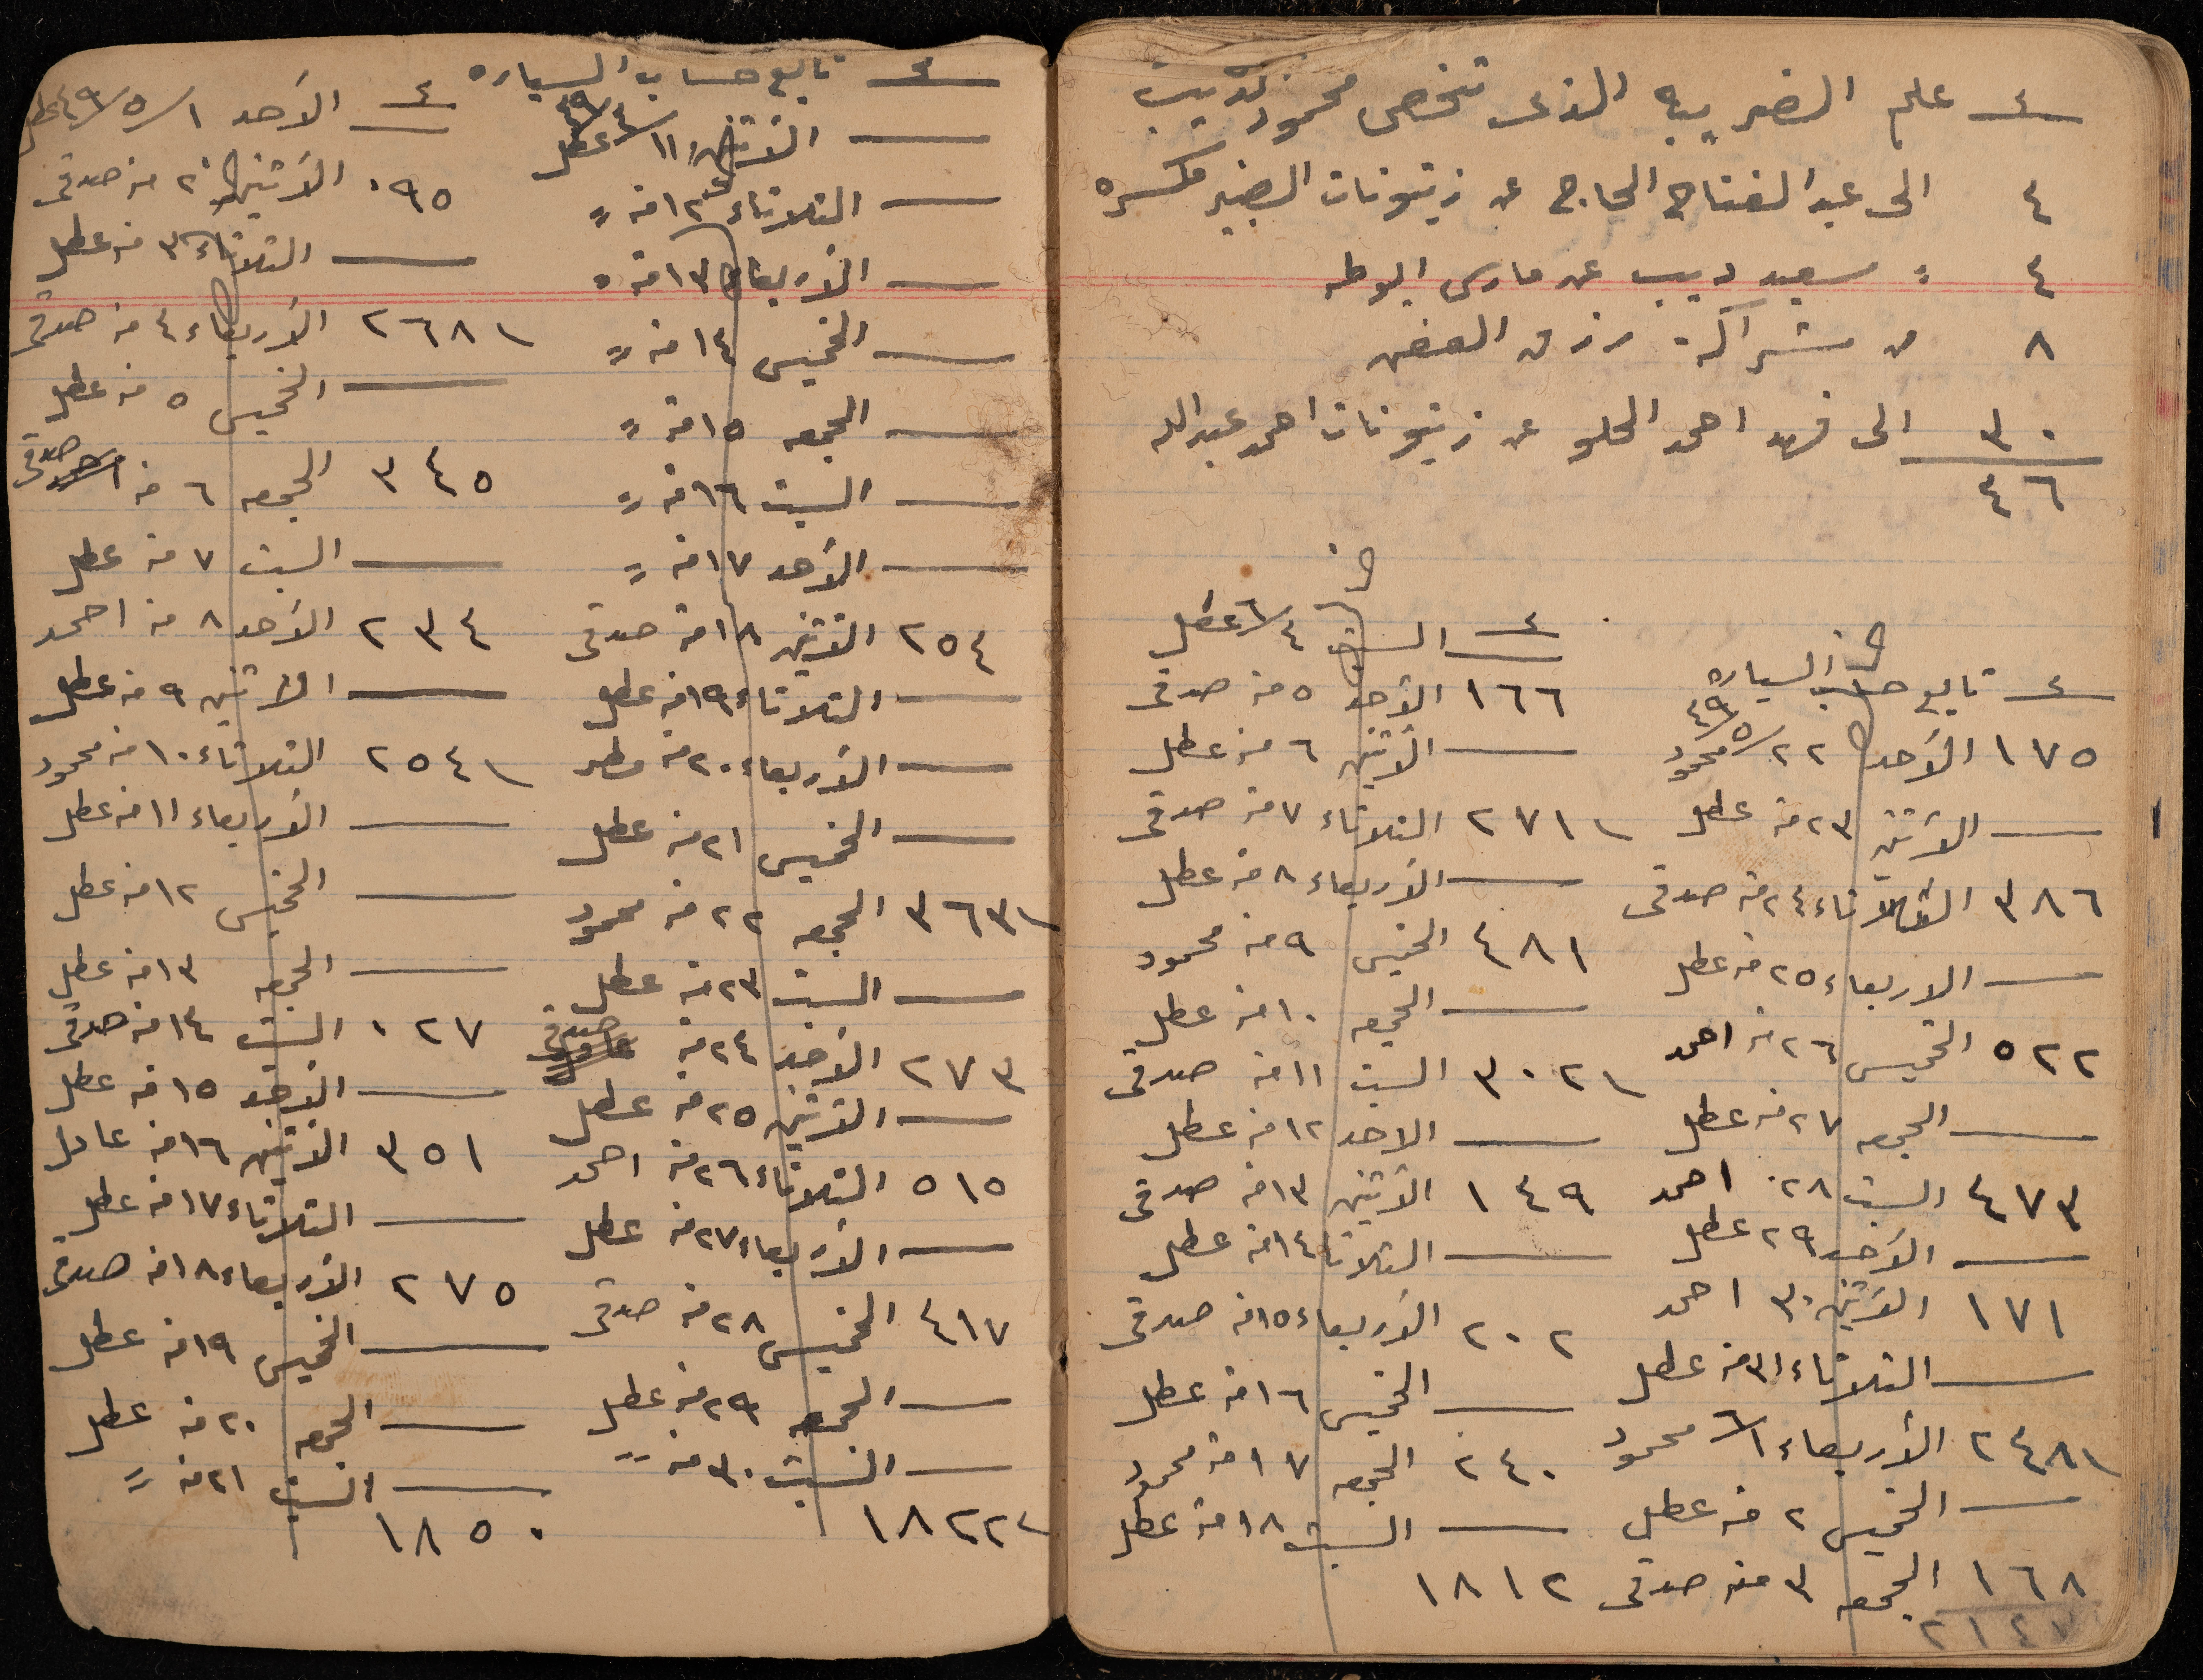 علم الضريبه الذى تخص محمود ديب
٤ الى عبد الفتاح الحاج عن زيتونات الصغير مكسره
٤ " سعيد ديب عن مارس البوطه
٨ من شراكة رزق العفن
٣٠ الى فهد احمد الحلو عن زيتونات احمد عبدالله
٤٦
تابع حساب السياره
١٧٥ الأحد ٢٢/٥/٤٩ محمود
— الأثنين ٢٣ منه عطل
٣٨٦ الثلاثاء ٢٤ منه صدقى
— الاربعاء ٢٥ منه عطل
٥٢٢ الخميس ٢٦ منه احمد
— الجمعه ٢٧ منه عطل
٤٧٣ السبت ٢٨ احمد
— الأحد ٢٩ عطل
١٧١ الأثنين ٣٠ احمد
— الثلاثاء ٣١ منه عطل
٢٤٨١ الأربعاء ١/٦ محمود
— الخميس ٢ منه عطل
١٦٨ الجمعه ٣ منه صدقى
— السبت ٤/٦ عطل
١٦٦ الأحد ٥ منه صدقى
— الأثنين ٦ منه عطل
٢٧١ الثلاثاء ٧ منه صدقى
— الأربعاء ٨ منه عطل
٤٨١ الخميس ٩ منه محمود
— الجمعه ١٠ منه عطل
٣٠٢ السبت ١١ منه صدقى
— الاحد ١٢ منه عطل
١٤٩ الأثنين ١٣ منه صدقى
— الثلاثا ١٤ منه عطل
٢٠٢ الأربعاء ١٥ منه صدقى
— الخميس ١٦ منه عطل
٢٤٠ الجمعه ١٧ منه محمود
— السبت ١٨ منه عطل
١٨١٢
تابع حساب السياره
— الأثنين ١١/٤/٤٩ عطل
— الثلاثاء ١٢ منه "
— الأربعاء ١٣ منه "
— الخميس ١٤ منه "
— الجمعه ١٥ منه "
— السبت ١٦ منه "
— الأحد ١٧ منه "
٢٥٤ الأثنين ١٨ منه صدقى
— الثلاثاء ١٩ منه عطل
— الأربعاء ٢٠ منه مطر
— الخميس ٢١ منه عطل
٣٦٣ الجمعه ٢٢ منه محمود
— السبت ٢٣ منه عطل
٢٧٣ الأحد ٢٤ منه صدقى
— الأثنين ٢٥ منه عطل
٥١٥ الثلاثاء ٢٦ منه احمد
— الأربعاء ٢٧ منه عطل
٤١٧ الخميس ٢٨ منه صدقى
— الجمعه ٢٩ منه عطل
— السبت ٣٠ منه "
١٨٢٢
— الأحد ١/٥/٤٩ عطل
٠٩٥ الأثنين ٢ منه صدقى
— الثلاثاء ٣ منه عطل
٢٦٨١ الأربعاء ٤ منه صدقى
— الخميس ٥ منه عطل
٣٤٥ الجمعه ٦ منه صدقى
— السبت ٧ منه عطل
٢٣٤ الأحد ٨ منه احمد
— الاثنين ٩ منه عطل
٢٥٤١ الثلاثاء ١٠ منه محمود
— الأربعاء ١١ منه عطل
— الخميس ١٢ منه عطل
— الجمعه ١٣ منه عطل
٠٢٧ السبت ١٤ منه صدقى
— الأحد ١٥ منه عطل
٣٥١ الأثنين ١٦ منه عادل
— الثلاثاء ١٧ منه عطل
٢٧٥ الأربعاء ١٨ منه صدقى
— الخميس ١٩ منه عطل
— الجمعه ٢٠ منه عطل
— السبت ٢١ منه "
١٨٥٠